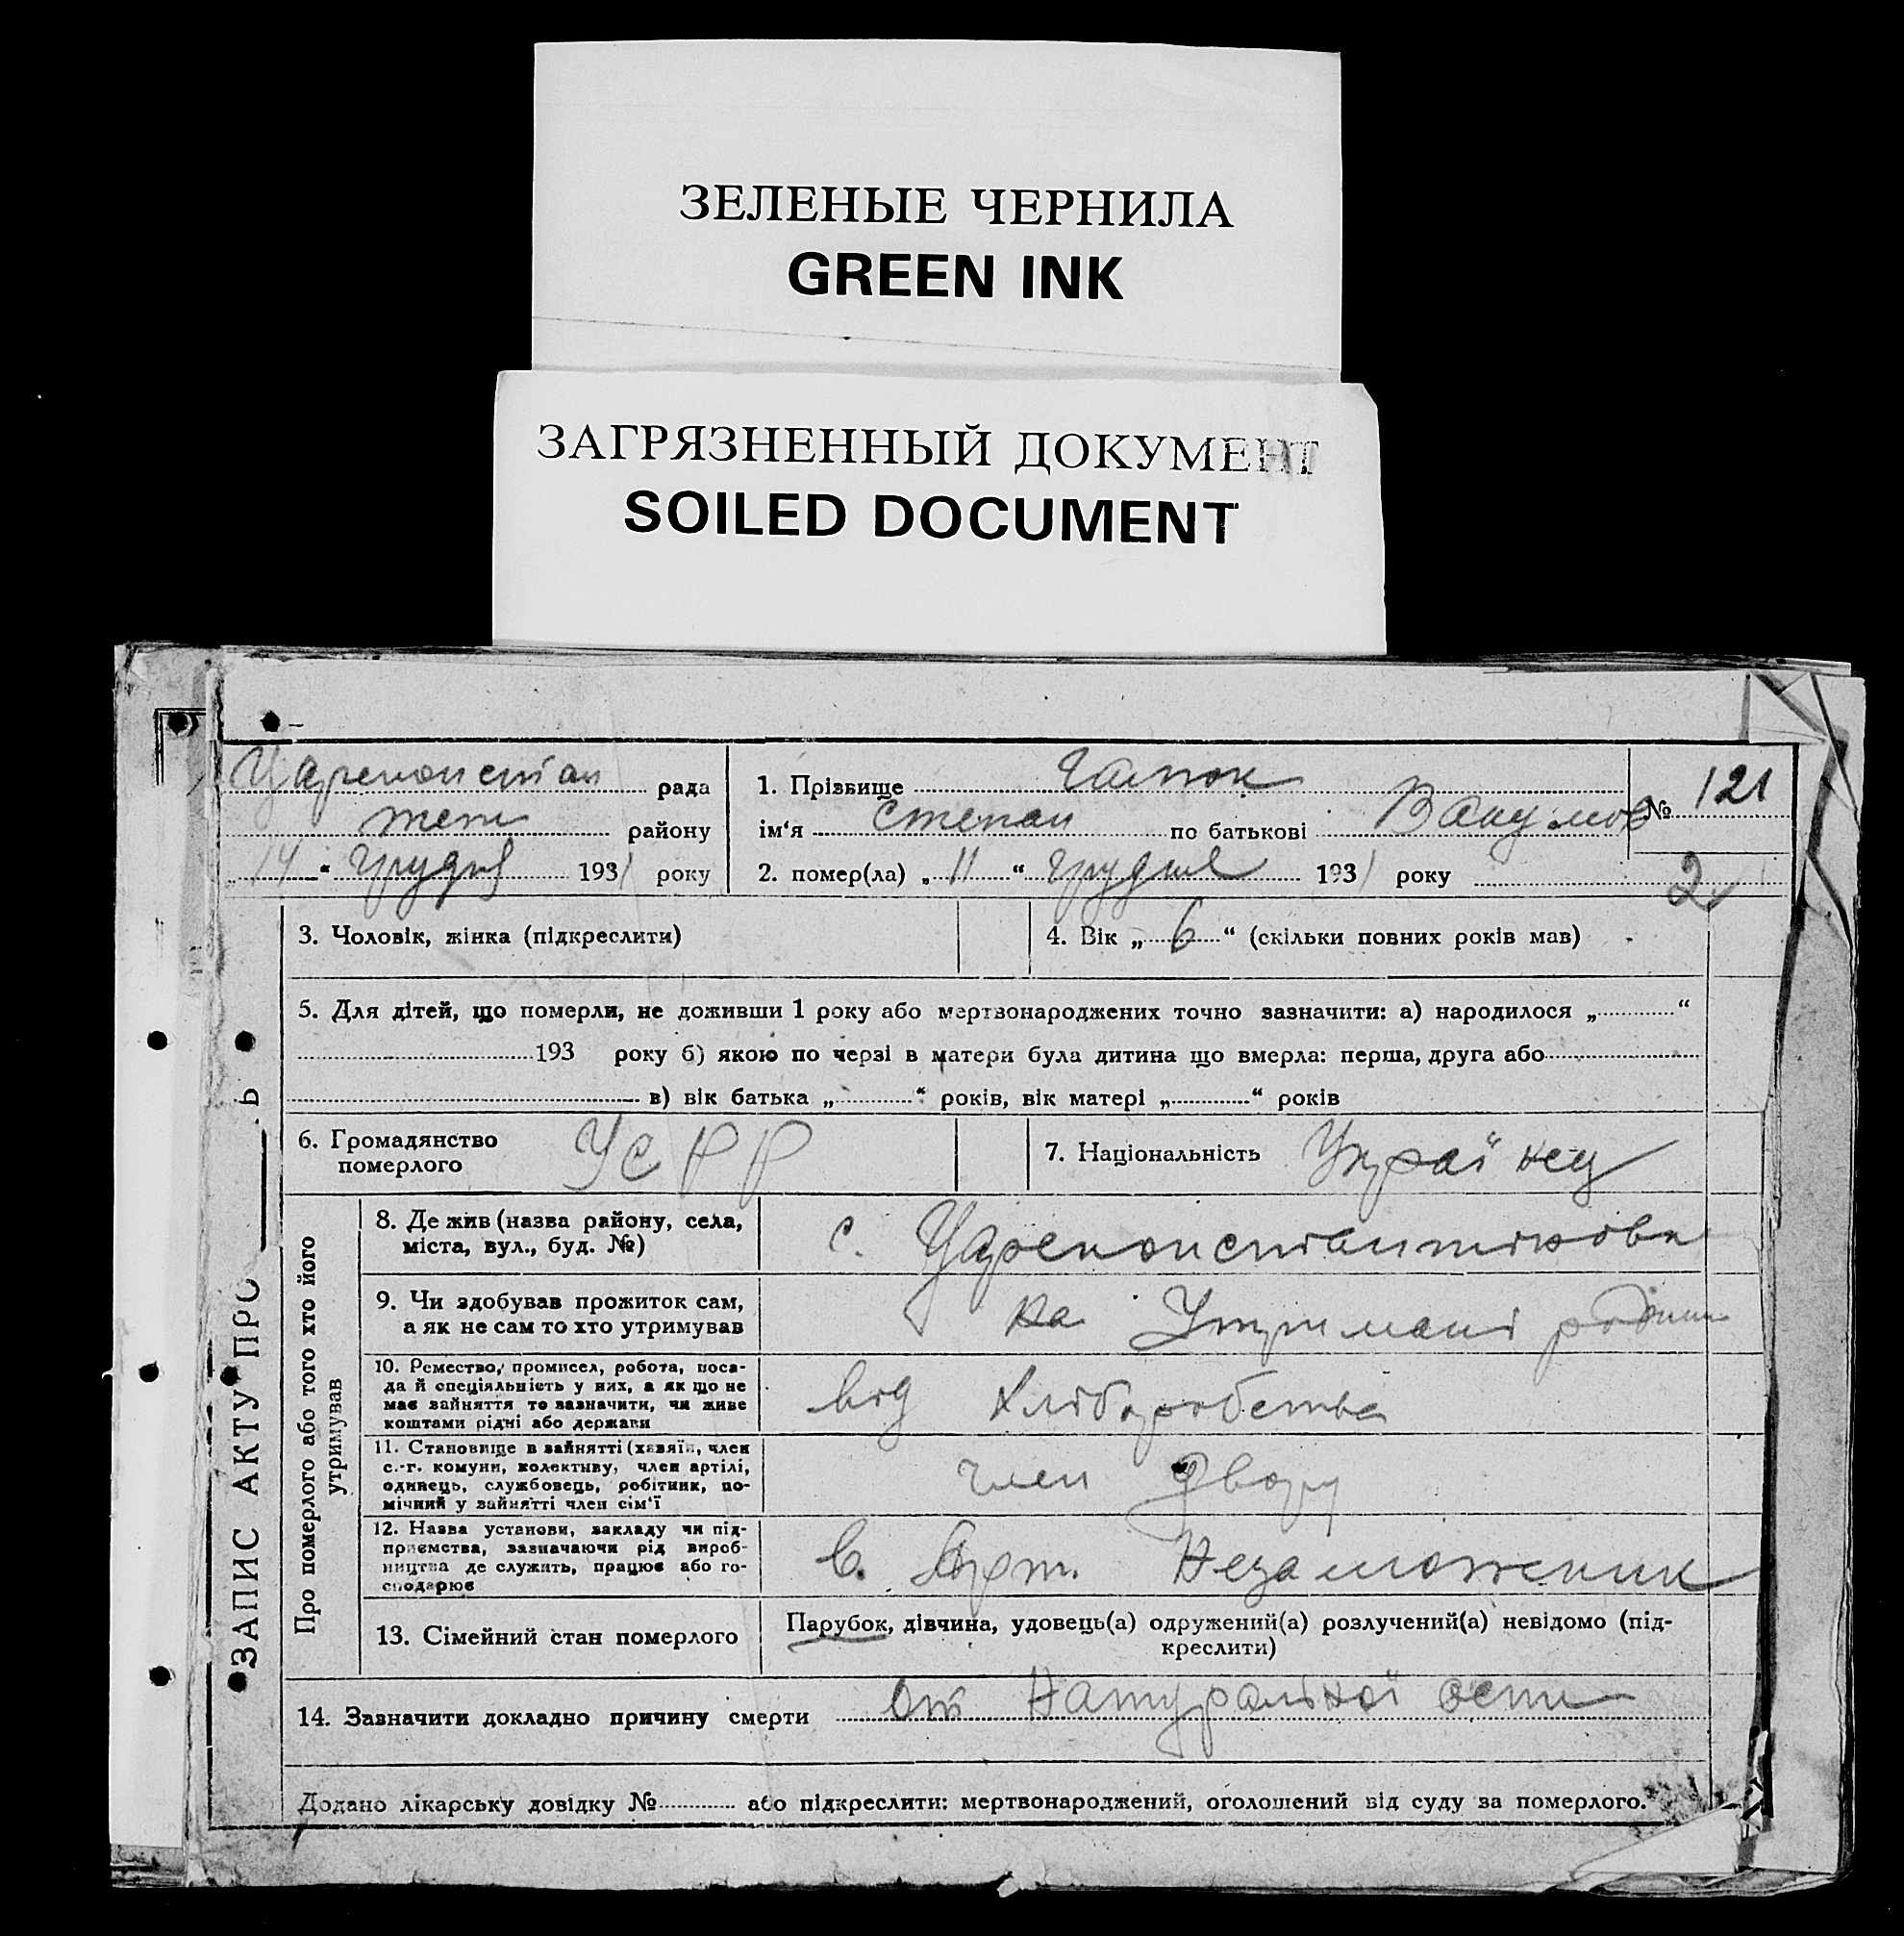 ЗЕЛЕНЫЕ ЧЕРНИЛА
GREEN INK
ЗАГРЯЗНЕННЫЙ ДОКУМЕНТ
SOILED DOCUMENT
Цареконстан рада
району
„14“ Грудня 1931 року
1. Прізвище
ім‘я Степан по батькові Вакумов
№ 121
2. помер(ла) „11“ Грудня 1931 року
2
3. Чоловік, жінка (підкреслити)
4. Вік „6“ (скільки повних років мав)
5. Для дітей, що померли, не доживши 1 року або мертвонароджених точно зазначити: а) народилося „ “
193 року б) якою по черзі в матери була дитина що вмерла: перша, друга або
в) вік батька „ “ років, вік матері „ “ років
6. Громадянство
померлого
УСРР
7. Національність Українец
ЗАПИС АКТУ ПРО Ь
Про померлого або того хто його
утримував
8. Де жив (назва району, села,
міста, вул., буд. №)
с. Цареконстантіновка
9. Чи здобував прожиток сам,
а як не сам то хто утримував
на Утримані родини
10. Ремество, промисел, робота, поса-
да й спеціяльність у них, а як що не
має зайняття то зазначити, чи живе
коштами рідні або держави
від Хліборобства
11. Становище в зайнятті (хазяїн, член
с.-г. комуни, колективу, член артілі,
одинець, службовець, робітник, по-
мічний у зайнятті член сім‘ї
член двору
12. Назва установи, закладу чи під-
приємства, зазначаючи рід вироб-
ництва де служить, працює або го-
сподарює
С. Арт. Незаможник
13. Сімейний стан померлого
Парубок, дівчина, удовець(а) одружений(а) розлучений(а) невідомо (під-
креслити)
14. Зазначити докладно причину смерти От Натуральної оспи
Додано лікарську довідку № або підкреслити: мертвонароджений, оголошений від суду за померлого.